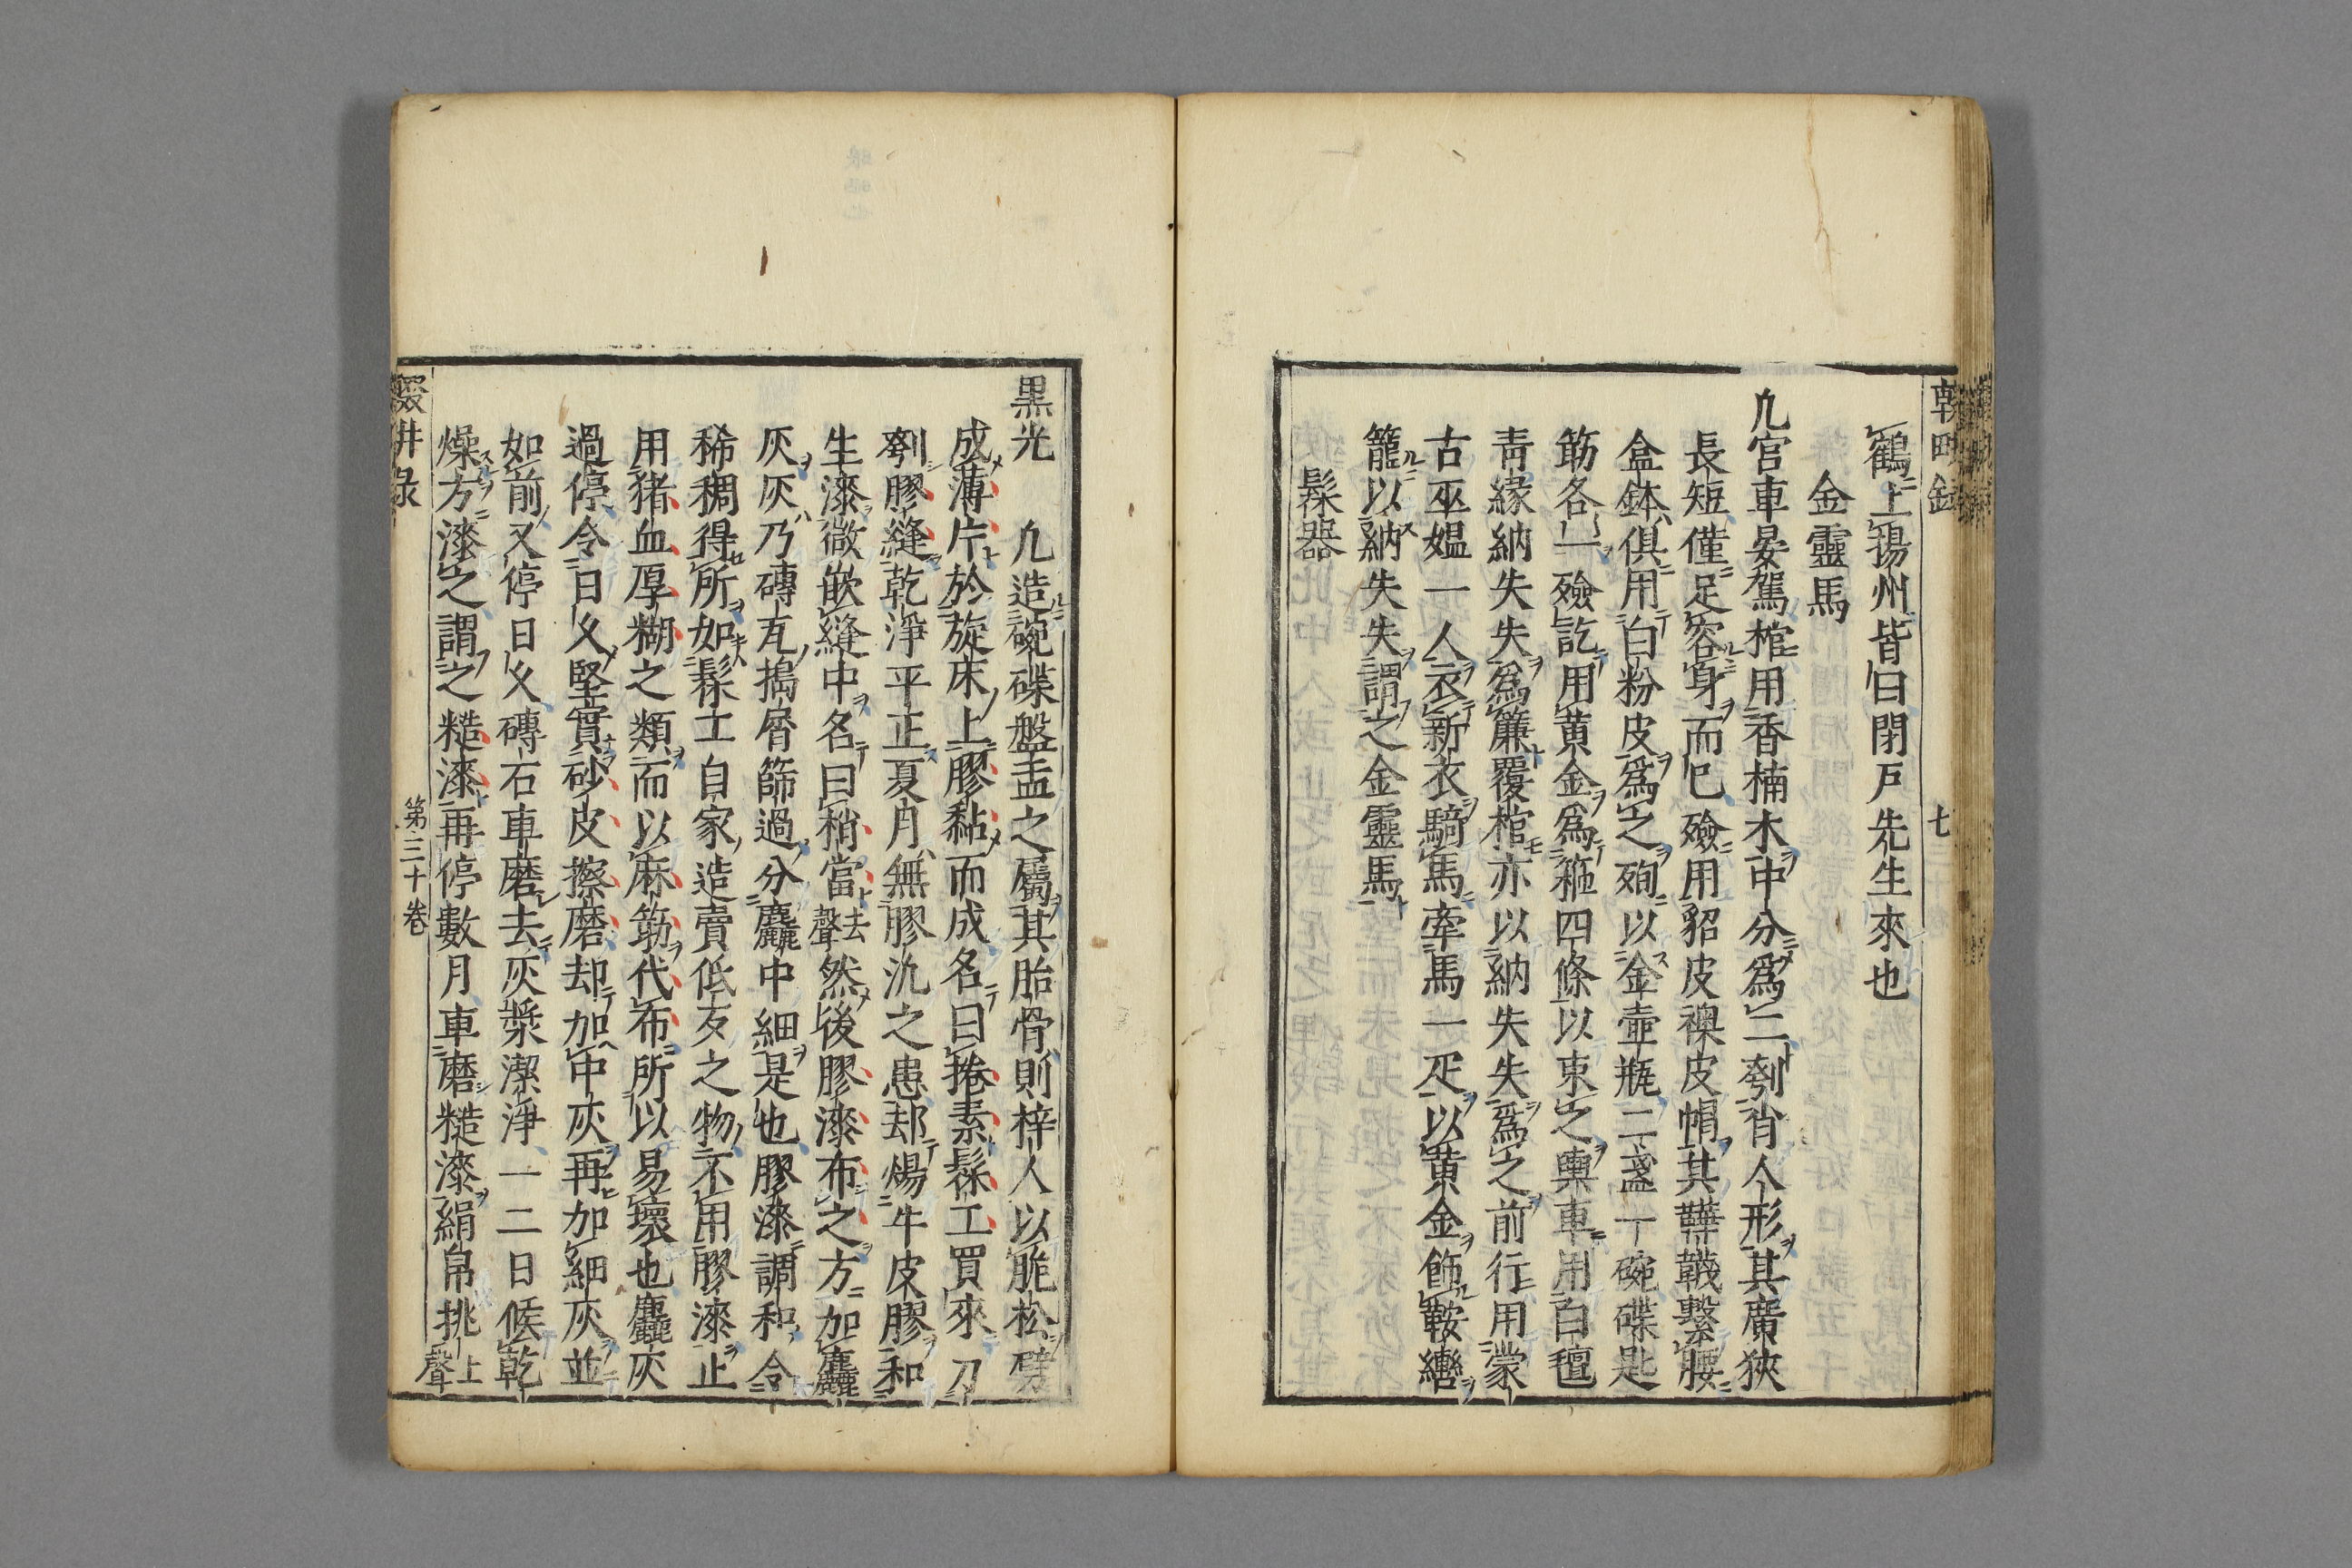 鶴上揚州皆曰閉戸先生來也
金靈馬
凢宮車晏駕棺用香楠木中分爲二刳肖人形其廣狹
長短僅足容身而已殮用貂皮襖皮帽其鞾韈繫腰
盒鉢俱用白粉皮爲之殉以金壺瓶二盞一碗碟匙
筯各一殮訖用黄金爲箍四條以束之輿車用白氊
青緣納失失爲簾覆棺亦以納失失爲之前行用蒙
古巫媼一人衣新衣騎馬牽馬一疋以黄金飾鞍轡
籠以納失失謂之金靈馬
髹器
黒光　凢造碗碟盤盂之屬其胎骨則梓人以脆松劈
成薄片於旋床上膠黏而成名曰捲素髹工買來刀
刳膠縫乾淨平正夏月無膠氿之患却煬牛皮膠和
生漆微嵌縫中名曰梢當去聲然後膠漆布之方加麤
灰灰乃磚瓦搗屑篩過分麤中細是也膠漆調和令
稀稠得所如髹工自家造賣低歹之物不用膠漆止
用猪血厚糊之類而以麻筯代布所以易壞也麤灰
過停令日久堅實砂皮擦磨却加中灰再加細灰並
如前又停日久磚石車磨去灰漿潔淨一二日候乾
燥方漆之謂之糙漆再停數月車磨糙漆絹帛挑上聲
第三十卷
七